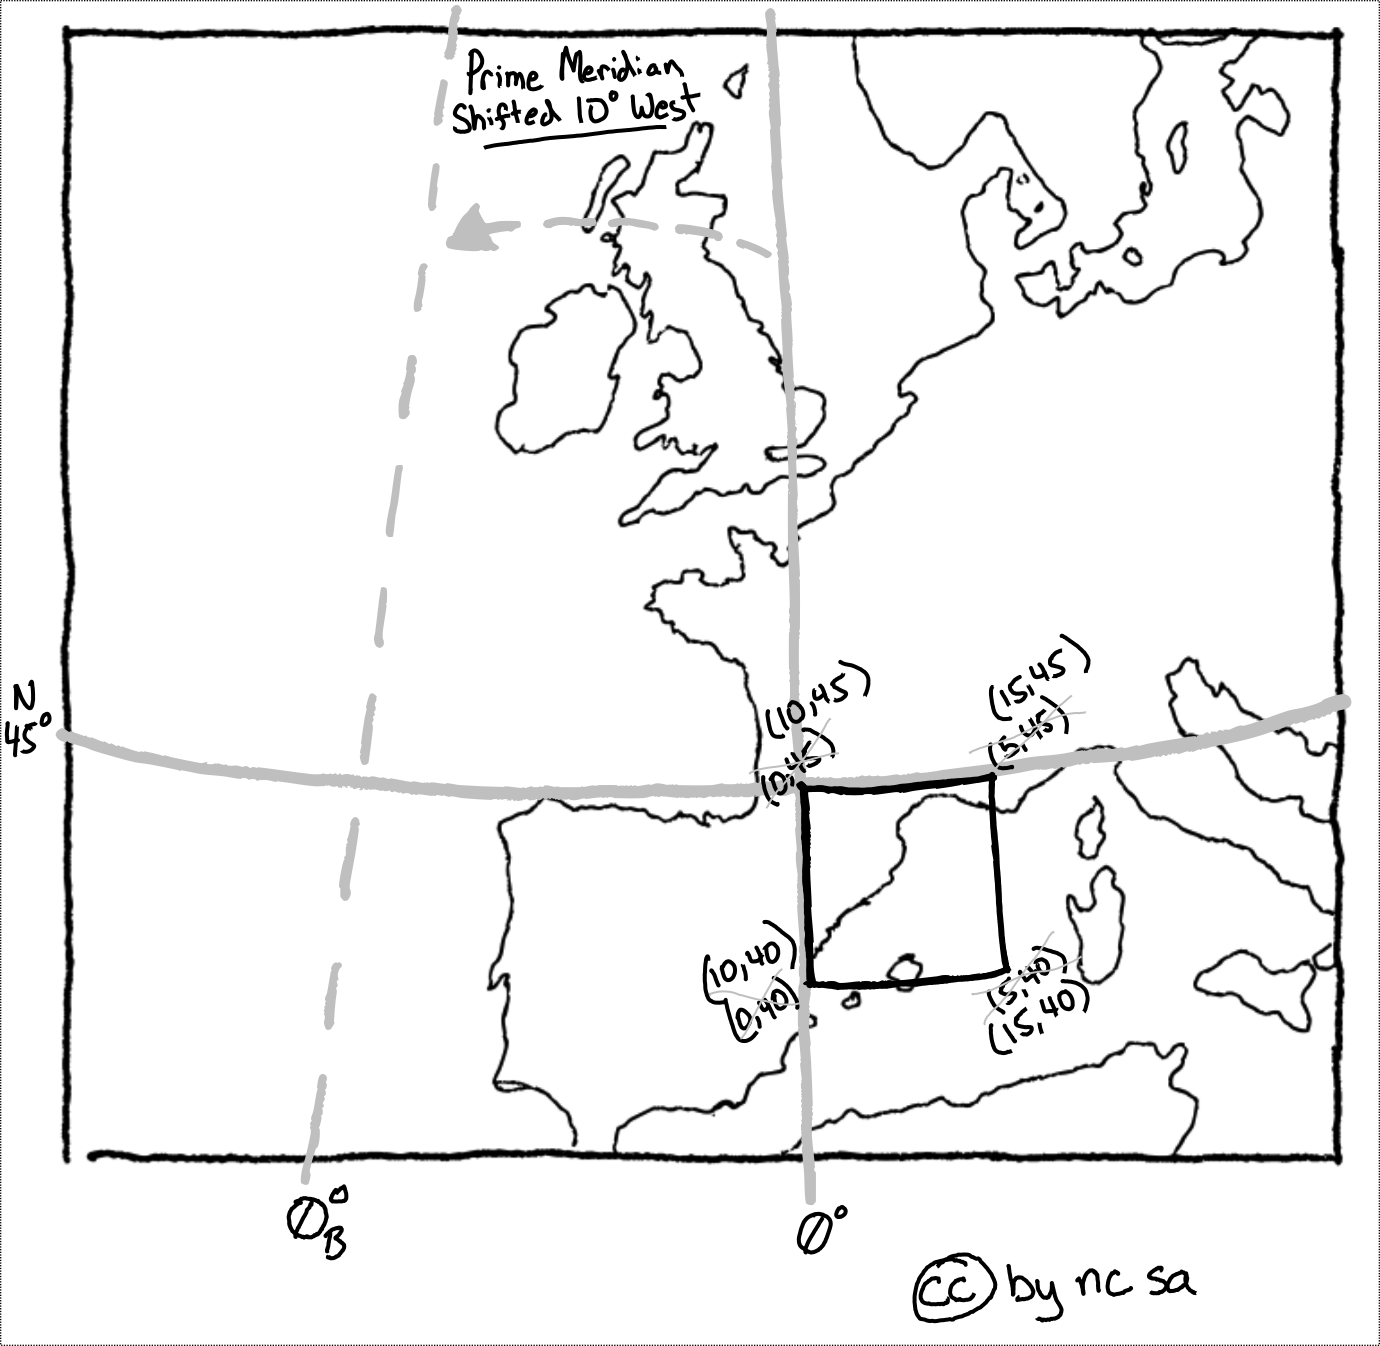 Prime Meridian
Shifted 10° West
N
45°
(10,45)
(0,45)
(15,45)
(5,45)
(10,40)
(0,40)
(5,40)
(15,40)
0°
B
0°
cc by nc sa